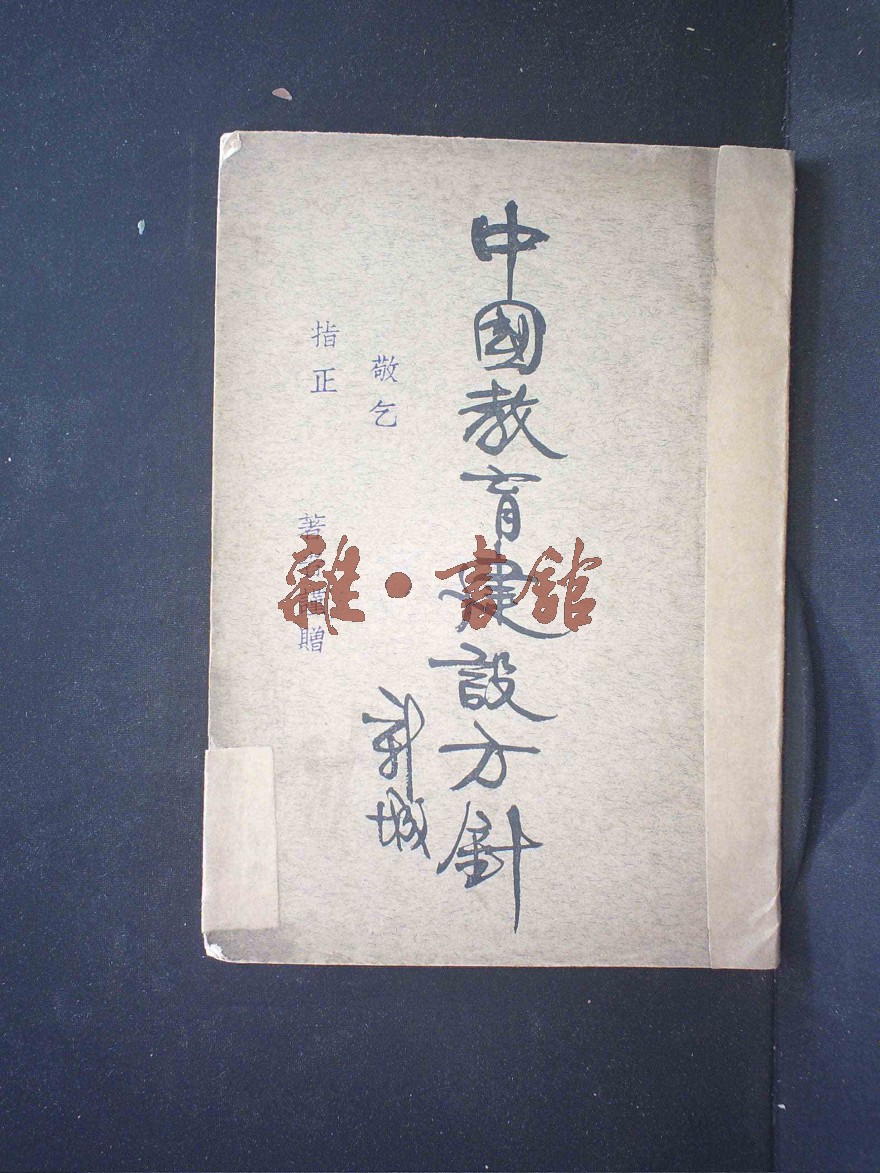 中國教育建設方針
新城
敬乞
指正
著者謹贈
雜·書館